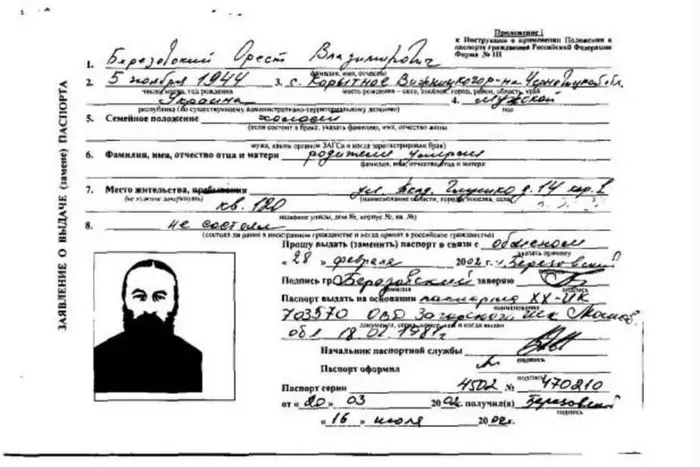 Приложение 1
к Инструкции о применении Положения о
паспорте гражданина Российской Федерации
Форма № 1П
ЗАЯВЛЕНИЕ О ВЫДАЧЕ (замене) ПАСПОРТА
1. Березовский Орест Владимирович
фамилия, имя, отчество
2. 5 ноября 1944 3. с. Корытное Вижницкого р-на Черновицкой обл.
число, месяц, год рождения место рождения – село,
Украина 4. мужской
республика (по существующему административно-территориальному делению) пол
5. Семейное положение холост
(если состоит в браке, указать фамилию, имя, отчество жены
мужа, каким органом ЗАГСа и когда зарегистрирован брак)
6. Фамилия, имя, отчество отца и матери родители умерли
фамилия, имя, отчество отца и матери
7. Место жительства, пребывания ул. д. 14 кор.
(ненужное зачеркнуть) (наименование области, города, поселка, села,
кв. 120
название улицы, дом №, корпус №, кв. №)
8. не состоял
(состоял ли ранее в иностранном гражданстве и когда принят в российское гражданство)
Прошу выдать (заменить) паспорт в связи с обменом
указать причину
"28" февраля 2002 г. Березовский
подпись
Подпись гр. Березовский заверяю
фамилия подпись
Паспорт выдать на основании паспорта XX-ИК
наименование
703570 ОВД Загорского
документа, серия, номер, кем и когда выдан
обл 18.01.1981г.
Начальник паспортной службы
подпись
Паспорт оформил
подпись
Паспорт серии 4502 № 470210
от «20» 03 2002 г. получил(а) Березовский
подпись
«16» июля 2002г.